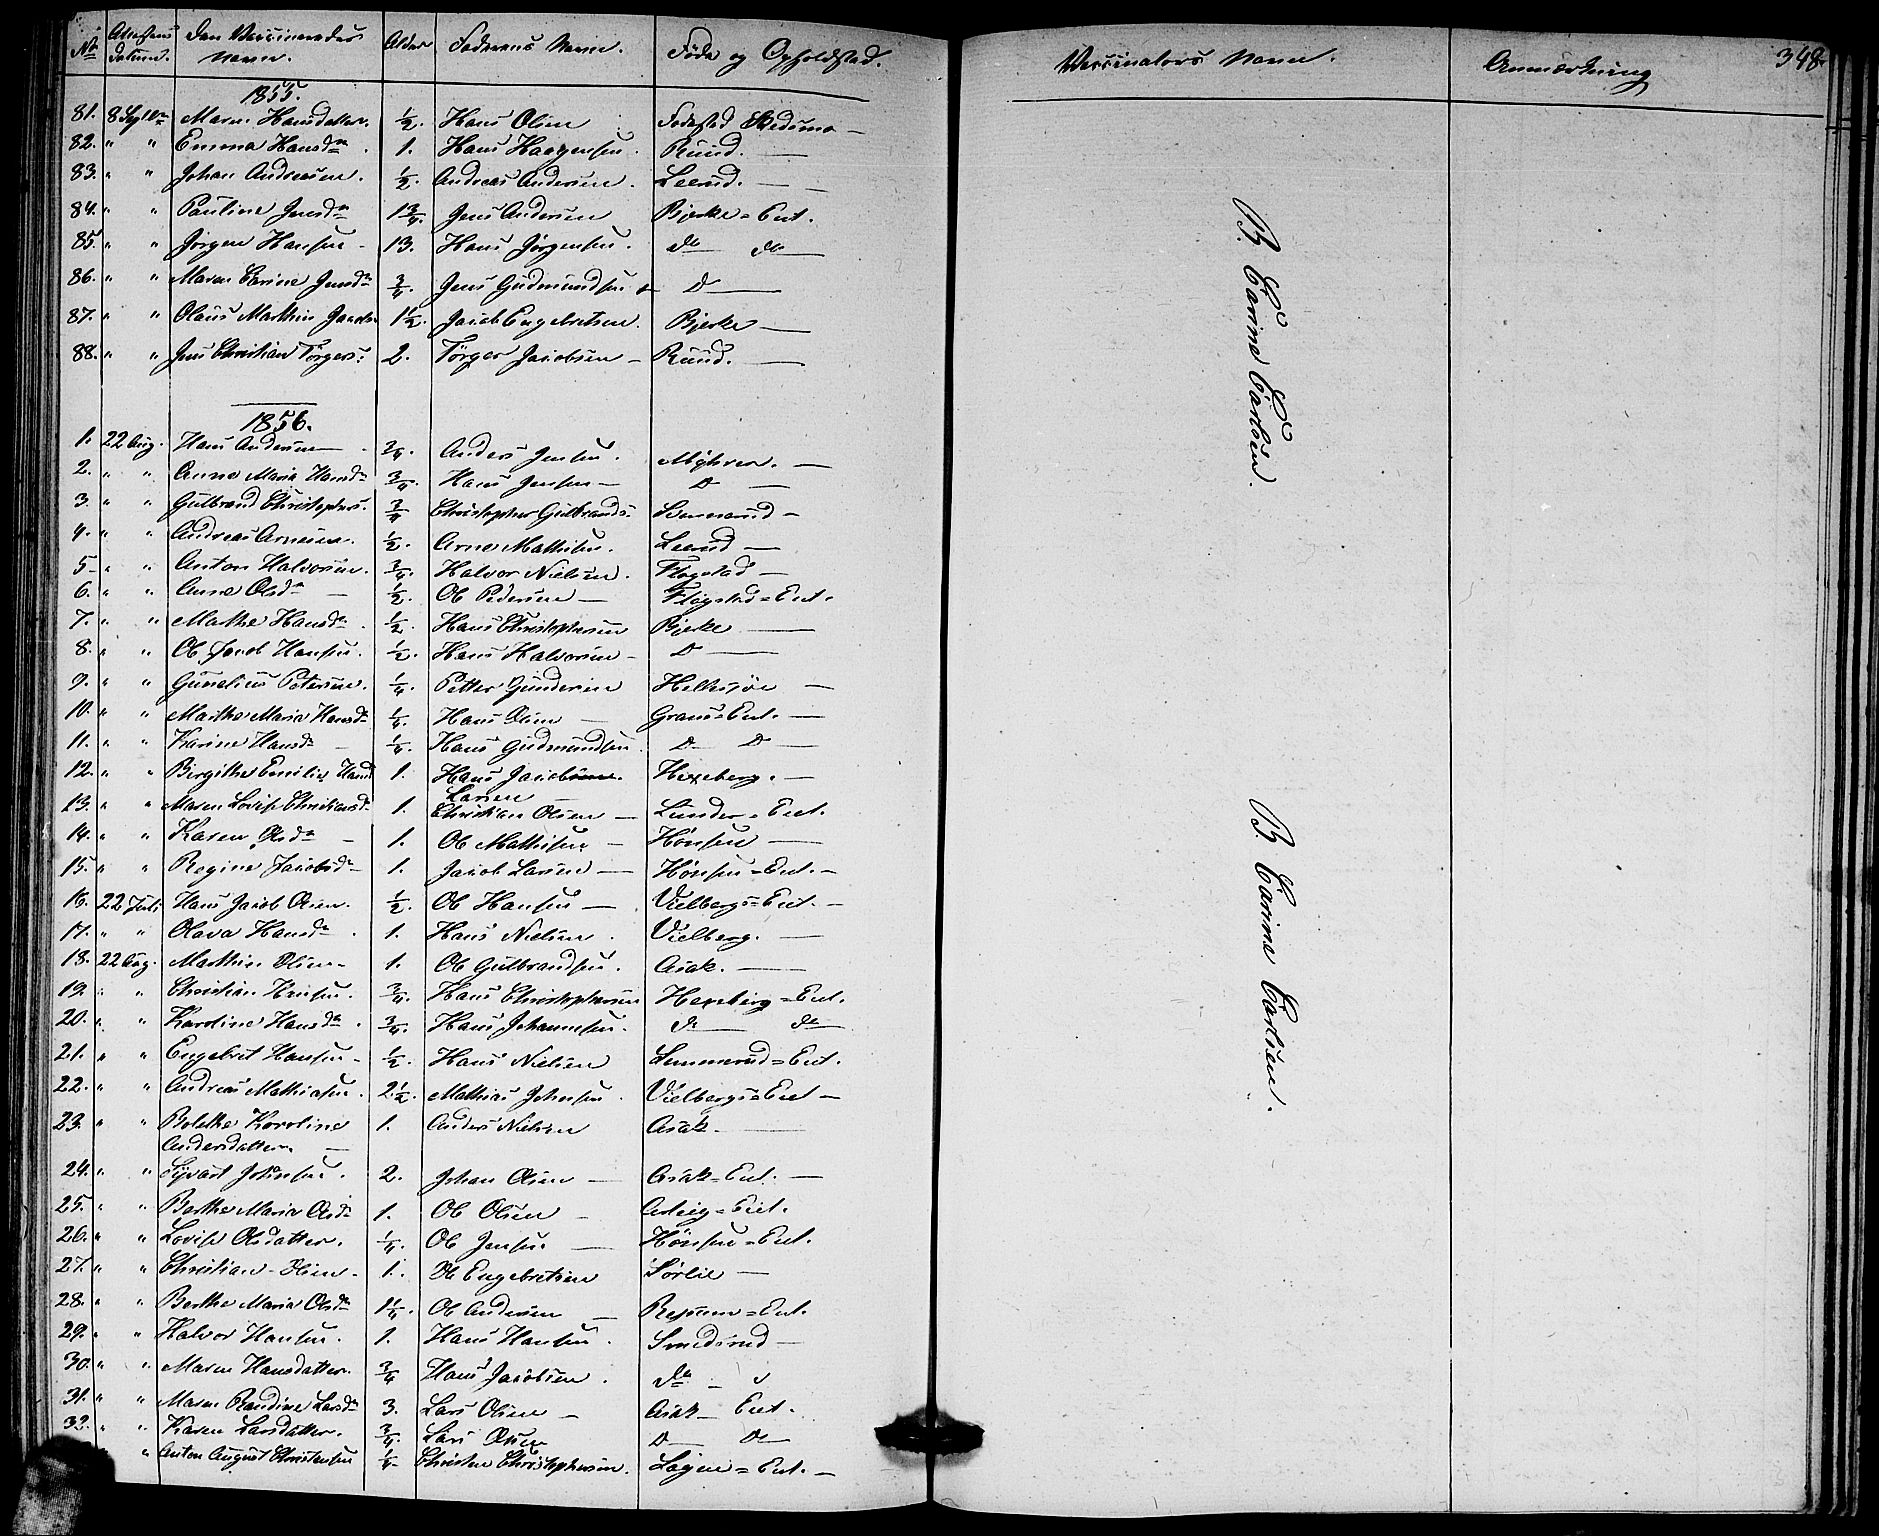 No Attestens Datum. Den Vaccineredes Navn. Alder Faderens Navn. Føde og Opholdsted. Vaccinators Navn. Anmærkning 348.
1855.
81. 8 Septbr Maren Hansdatter. 1/2. Hans Olsen Fodestad Skedsmo —
82. " " Emma Hansdr. 1. Hans Haagensen. Ruud. —
83. " " Johan Andreasen. 1/2. Andreas Andersen. Leerud. —
84. " " Pauline Jensdr 1 3/4. Jens Andersen Bjerke=Eiet.
85. " " Jørgen Hansen - 13. Hans Jørgensen. do do
86. " " Maren Karine Jensdr 3/4. Jens Gudmundsen D —
87. " " Olaus Mathias Jacobs 1 1/2. Jacob Engebretsen. Bjerke —
88. " " Jens Christian Törgers: 2. Törger Jacobsen — Ruud. —
1856.
1. 22 Aug. Hans Andersen — 3/4. Anders Jensen. Myhrer. —
2. " " Anne Maria Hansdr 3/4. Hans Jensen — D —
3. " " Gulbrand Christophers. 3/4 Christopher Gulbrands: —
4. " " Andreas Arnesen. 1/2. Arne Mathisen. Leerud —
5 - " " Anton Halvorsen. 3/4. Halvor Nielsen. Flogstad —
6. " " Anne Olsdr — 1/2. Ole Pedersen — Flogstad=Eiet.
7. " " Mathe Hansdr. 1/2. Hans Christophersen Bjerke —
8. " " Ole Jacob Hansen. 1/2. Hans Halvorsen - D —
9. " " Gunelius Petersen. 1/4. Petter Gundersen —
10. " " Marthe Maria Hansdr 1/4. Hans Olsen — =Eiet. —
11. " " Karine Hansdr — 1/4. Hans Gudmundsen D D —
12. " " Birgithe Emilie Hansd 1. Hans Jacobsen. Hexeberg. —
Larsen
13. " " Maren Lovise Christiansdr 1. Christian Olsen — Lunder=Eiet.
14. " " Karen Olsdr — 1. Ole Mathisen — Hønsen —
15. " " Regine Jacobsdr 1. Jacob Larsen — Hønsen=Eiet. -
16. 22 Juli Hans Jacob Olsen. 1/2. Ole Hansen — Vielbergs=Eiet. —
17. " " Olava Hansdr. 1. Hans Nielsen. Vielberg. —
18. 22 Aug. Mathias Olsen - 1. Ole Gulbrandsen. Asak. —
19. " " Christian Hansen. 3/4. Hans Christophersen Hexeberg=Eiet.
20. " " Karoline Hansdr. 3/4. Hans Johannesen. do do
21. " " Engebret Hansen - 1/2. Hans Nielsen =Eiet.
22. " " Andreas Mathiasen. 2 1/2. Mathias Johnsen. Vielbergs=Eiet —
23. " " Bolethe Karoline 1. Anders Nielsen Asak. —
Andersdatter. —
24. " " Syvart Johansen. 2. Johan Olsen — Asak=Eiet. —
25. " " Berthe Maria Olsdr 1. Ole Olsen — =Eiet.
26. " " Lovise Olsdatter. 1/4. Ole Jensen — Hönsen=Eiet.
27. " " Christian Olsen - 1. Ole Engebretsen Sørlie —
28. " " Berthe Maria Olsdr 1 1/4. Ole Andersen — =Eiet.
29. " " Halvor Hansen. 1. Hans Hansen. Smedsrud —
30. " " Maren Hansdatter. 3/4 Hans Jacobsen. do —
31. " " Maren Randine Larsdr 3. Lars Olsen — Asak — Eiet.
32. " " Karen Larsdatter. 3/4. Lars Olsen D — D —
" Anton August Christensen 1/4 - Christen Christophersen. =Eiet. —
B. Carine Carlsen.
B. Carine Carlsen.